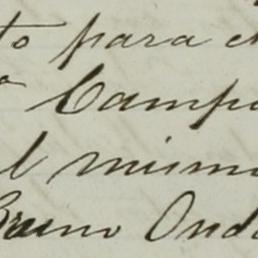 to para el
Campo
el mismo
Bruno Onda